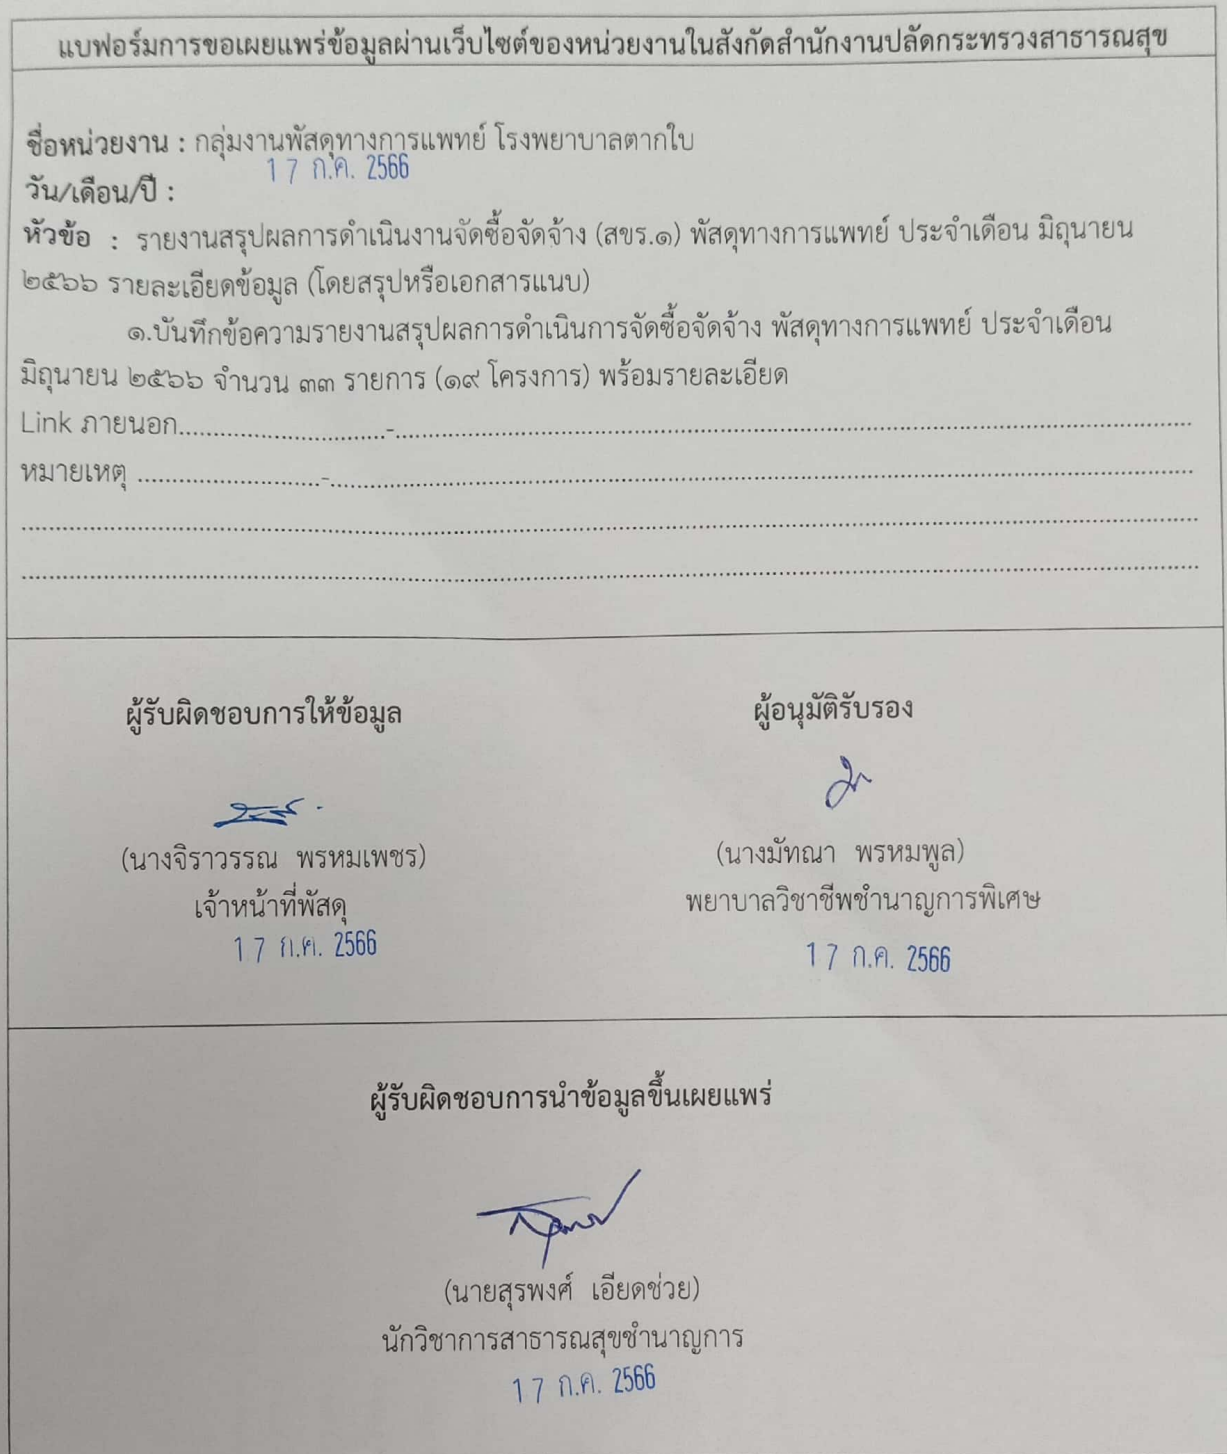 แบบฟอร์มการขอเผยแพร่ข้อมูลผ่านเว็บไซต์ของหน่วยงานในสังกัดสำนักงานปลัดกระทรวงสาธารณสุข
ชื่อหน่วยงาน : กลุ่มงานพัสดุทางการแพทย์ โรงพยาบาลตากใบ
17 ก.ค. 2566
วัน/เดือน/ปี :
หัวข้อ : รายงานสรุปผลการดำเนินงานจัดซื้อจัดจ้าง (สขร.๑) พัสดุทางการแพทย์ ประจำเดือน มิถุนายน
๒๕๖๖ รายละเอียดข้อมูล (โดยสรุปหรือเอกสารแนบ)
๑.บันทึกข้อความรายงานสรุปผลการดำเนินการจัดซื้อจัดจ้าง พัสดุทางการแพทย์ ประจำเดือน
มิถุนายน ๒๕๖๖ จำนวน ๓๓ รายการ (๑๙ โครงการ) พร้อมรายละเอียด
Link ภายนอก..............................-....................................................................................................................
หมายเหตุ ...........................-..............................................................................................................................
ผู้รับผิดชอบการให้ข้อมูล ผู้อนุมัติรับรอง
(นางจิราวรรณ พรหมเพชร) (นางมัทณา พรหมพูล)
เจ้าหน้าที่พัสดุ พยาบาลวิชาชีพชำนาญการพิเศษ
17 ก.ค. 2566 17 ก.ค. 2566
ผู้รับผิดชอบการนำข้อมูลขึ้นเผยแพร่
(นายสุรพงศ์ เอียดช่วย)
นักวิชาการสาธารณสุขชำนาญการ
17 ก.ค. 2566